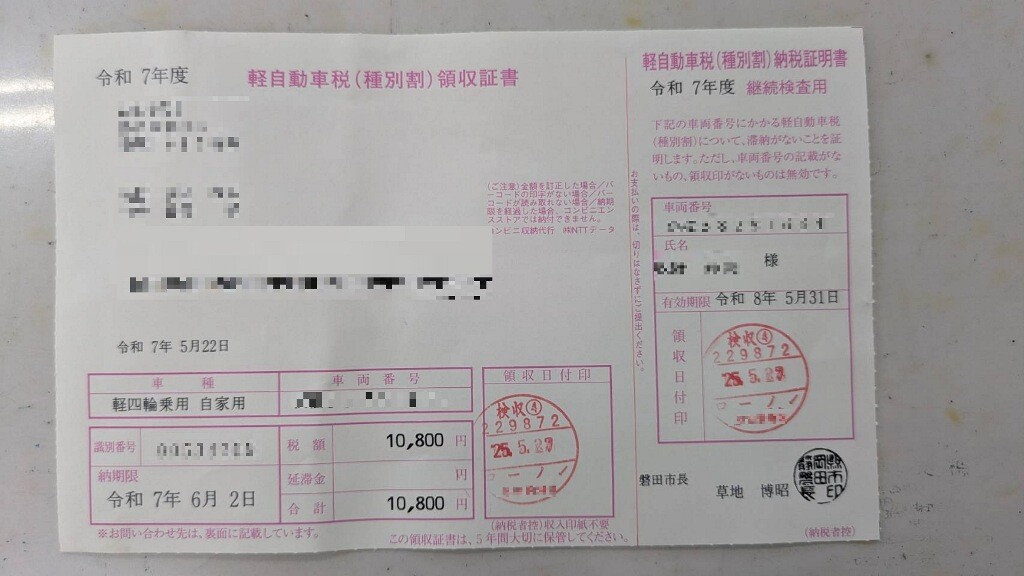 令和 7年度
軽自動車税(種別割)領収証書
(ご注意)金額を訂正した場合/バ
ーコードの印字がない場合/バー
コードが読み取れない場合/納期
限を経過した場合、コンビニエン
スストアでは納付できません。
コンビニ収納代行 ㈱NTTデータ
令和 7年 5月22日
車種
車両番号
軽四輪乗用 自家用
識別番号
税額 10,800 円
納期限
延滞金 円
令和 7年 6月 2日
合計 10,800 円
領収日付印
検収④
229872
25.5.27
(納税者控)収入印紙不要
※お問い合わせ先は、裏面に記載しています。
この領収証書は、5年間大切に保管してください。
お支払いの際は、切りはなさずにご提出ください。
軽自動車税(種別割)納税証明書
令和 7年度 継続検査用
下記の車両番号にかかる軽自動車税
(種別割)について、滞納がないことを証
明します。ただし、車両番号の記載がな
いもの、領収印がないものは無効です。
車両番号
氏名
様
有効期限 令和 8年 5月31日
領収日付印
検収④
229872
25.5.27
磐田市長
草地 博昭
(納税者控)